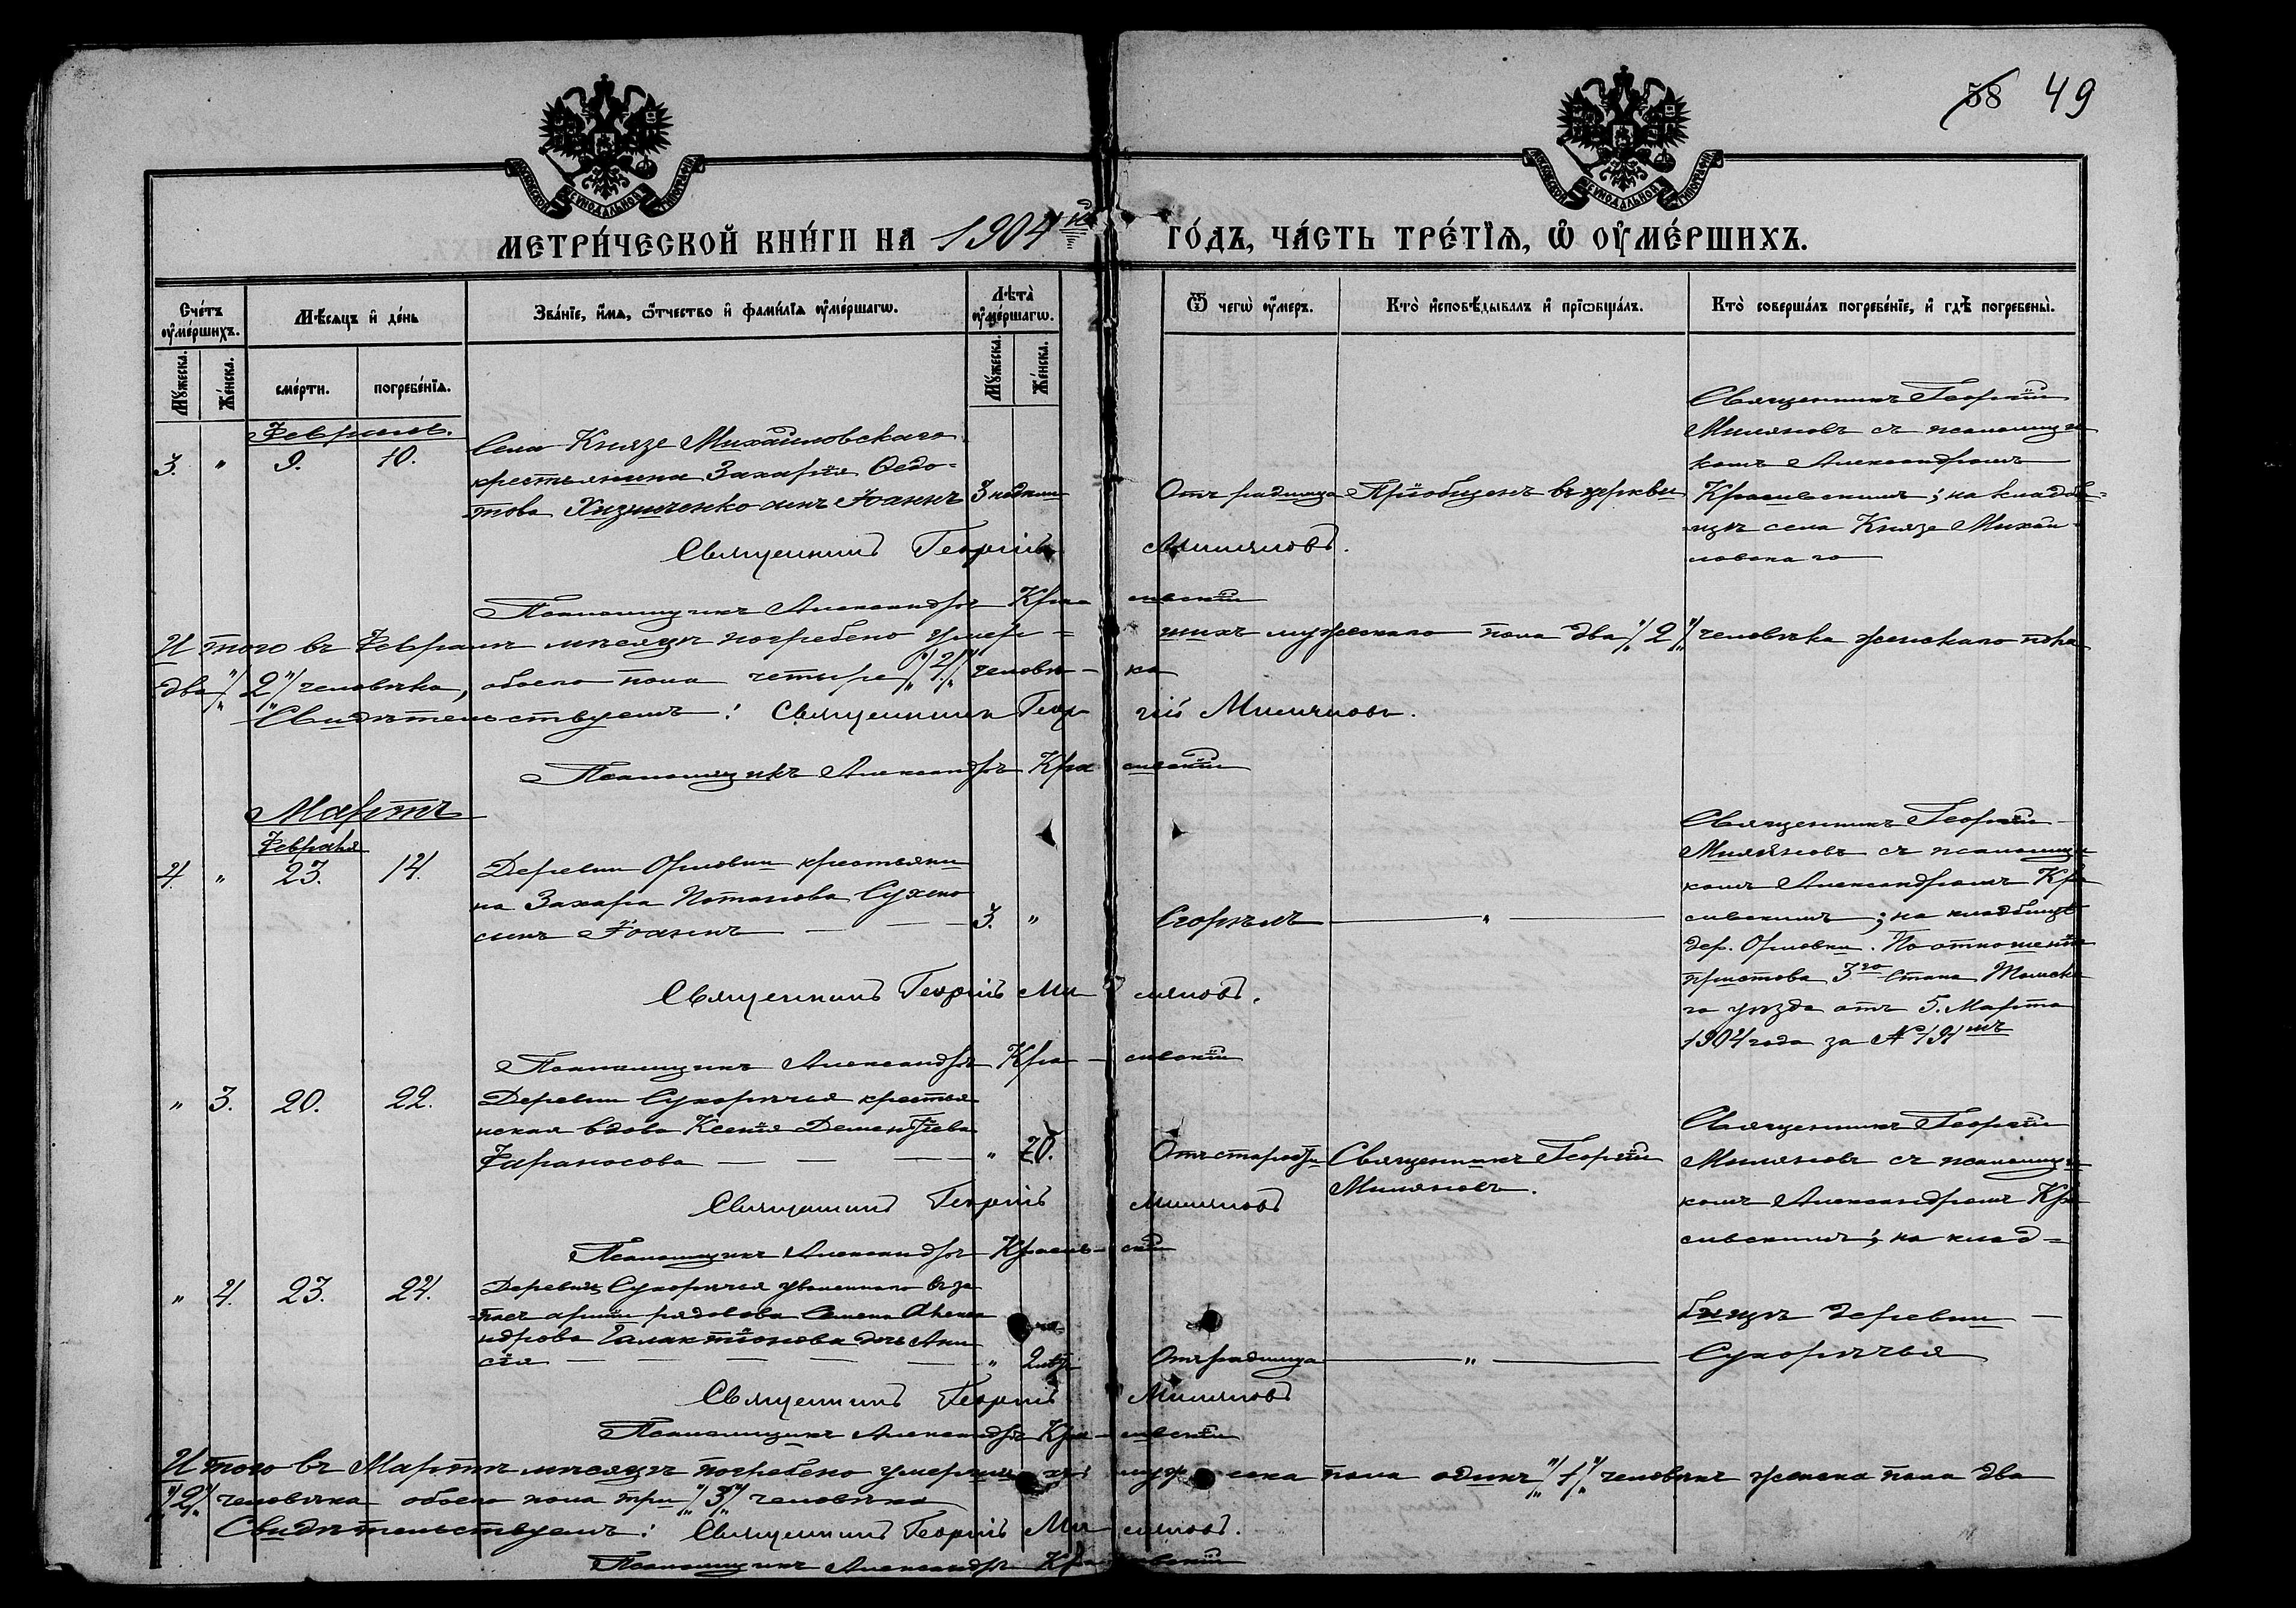 58 49
МОСКОВСКОЙ СѴНОДАЛЬНОЙ ТИПОГРАФІИ
МОСКОВСКОЙ СѴНОДАЛЬНОЙ ТИПОГРАФІИ
МЕТРИ́ЧЕСКОЙ КНИ́ГИ НА 1904й ГО́ДЪ, ЧА́СТЬ ТРЕ́ТІѦ, Ѽ ОУ҆МЕ́РШИХЪ.
Сче́тъ оу҆ме́ршихъ.
Мѣ́сяцъ и҆ де́нь
Зва́нїе, и҆́мѧ, ѻ҆́тчество и҆ фами́лїѧ оу҆ме́ршагѡ.
Лѣ́та оу҆ме́ршагѡ.
Ѿ чегѡ̀ оу҆́меръ.
Кто̀ и҆сповѣ́дывалъ и҆ прїѡбща́лъ.
Кто̀ соверша́лъ погребе́нїе, и҆ гдѣ̀ погребены̀.
Мꙋ́жеска.
Же́нска.
сме́рти.
погребе́нїѧ.
Мꙋ́жеска.
Же́нска.
Февраль.
3. " 9. 10.
Села Князе Михайловскаго
крестьянина Захарія Ѳедо=
това Хизниченко сынъ Іоаннъ
Отъ родимца
Пріобщенъ въ церкви
Священникъ Георгій
Миляновъ съ псаломщи
комъ Александромъ
Красивскимъ; на кладби=
щѣ села Князе Михай
ловскаго
Священникъ Георгій Миляновъ.
Псаломщикъ Александръ Красивскій
Итого въ Февралѣ мѣсяцѣ погребено умер=шихъ мужескаго пола два "/2/" человѣка женскаго пола
два "/2/" человѣка, обоего пола четыре "/4/" человѣ-ка
Свидѣтельствуемъ: Священникъ Георгій Миляновъ.
Псаломщикъ Александръ Красивскій
Мартъ
Февраля
4. " 23. 14.
Деревни Орловки крестьяни
на Захара Потапова Сухено
сынъ Іоаннъ
3. "
Сгорѣлъ
"
Священникъ Георгій
Миляновъ съ псаломщи
комъ Александромъ Кра
сивскимъ; на кладбищѣ
дер. Орловки. По отношенію
пристова 3го Стана Томска
го уѣзда отъ 5. Марта
1904 года за № 191мъ
Священникъ Георгій Миляновъ.
Псаломщикъ Александръ Красивскій
" 3. 20. 22.
Деревни Сухорѣчья крестья
нская вдова Ксенія Дементіева
Фараносова
" 70.
Отъ старости
Священникъ Георгій
Миляновъ.
Священникъ Георгій
Миляновъ съ псаломщи
комъ Александромъ Кра
сивскимъ; на клад=
бищѣ деревни
Сухорѣчья
Священникъ Георгій Миляновъ
Псаломщикъ Александръ Красивскій
" 4. 23. 24.
Деревни Сухорѣчья уволеннаго въ за
=пасъ арміи рядовова Семена Алекса
ндрова Галактіонова дочь Ани
сія
"
Отъ родимца
"
Священникъ Георгій Миляновъ
Псаломщикъ Александръ Красивскій
Итого въ Мартѣ мѣсяцѣ погребено умершихъ мужеска пола одинъ "/1/" человѣкъ женска пола два
"/2/" человѣка обоего пола три "/3/" человѣка
Свидѣтельствуемъ: Священникъ Георгій Миляновъ.
Псаломщикъ Александръ Красивскій